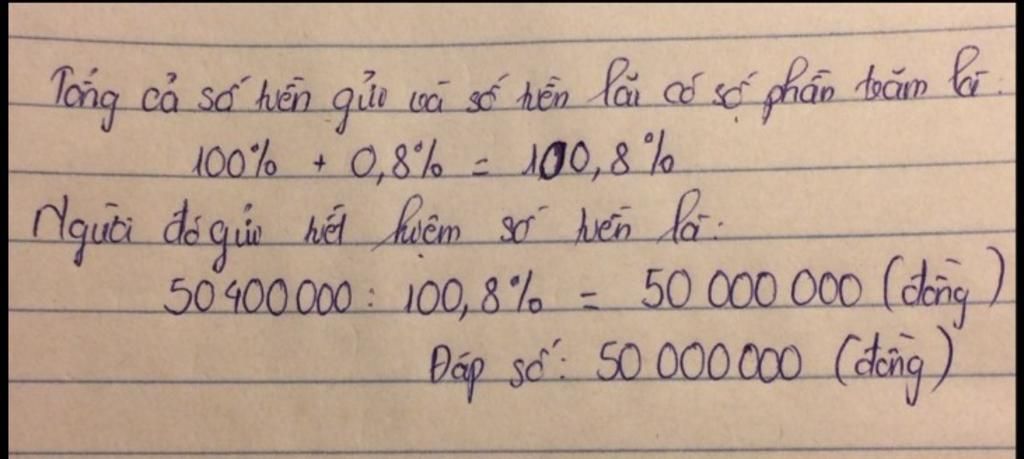 Tổng cả số tiền gửi và số tiền lãi có số phần trăm là:
100% + 0,8% = 100,8%
Người đó gửi tiết kiệm số tiền là:
50 400 000 : 100,8% = 50 000 000 (đồng)
Đáp số: 50 000 000 (đồng)